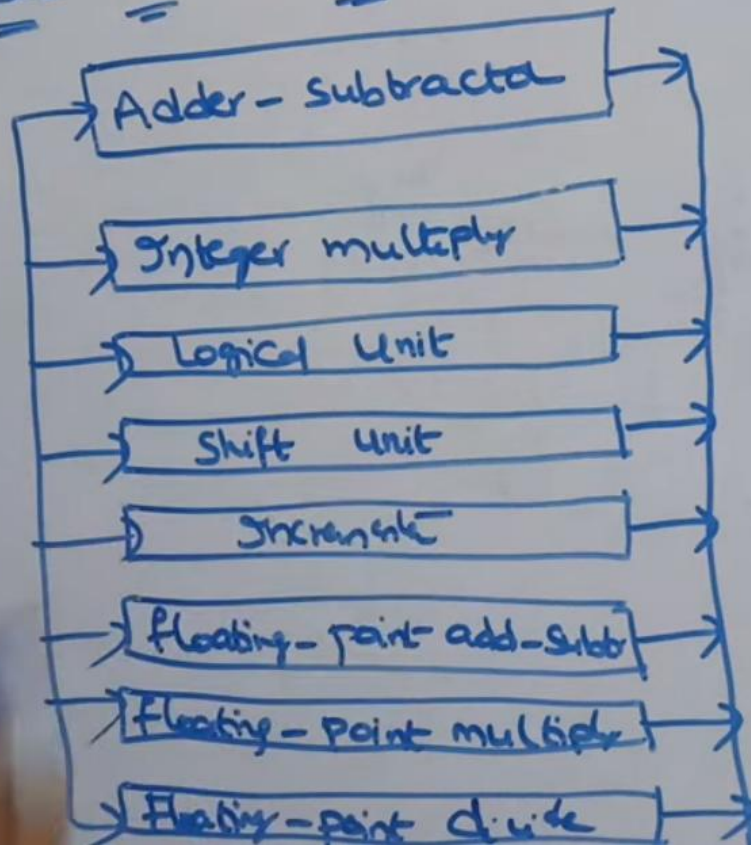 Adder - Subtractor
Integer multiply
Logical Unit
Shift Unit
Increment
floating - point add - Subtr
floating - point multiply
Floating - point divide